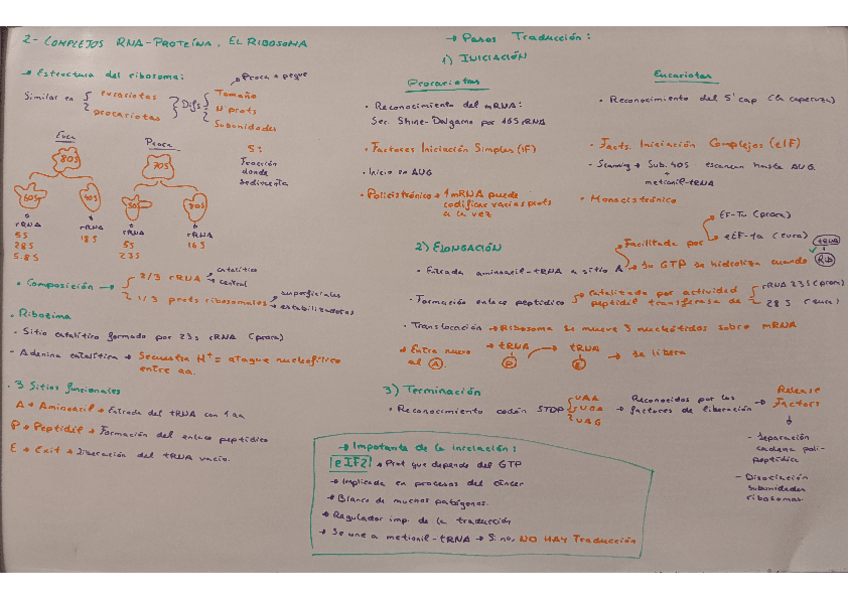 2- COMPLEJOS RNA-PROTEÍNA. EL RIBOSOMA
→ Estructura del ribosoma:
Similar en
eucariotas
procariotas
Difs
Proca + peque
Tamaño
Nº prots
Subunidades
Euca
80S
60S
40S
rRNA
5S
28S
5.8S
rRNA
18S
Proca
70S
50S
30S
rRNA
5S
23S
rRNA
16S
S:
Fracción
donde
sedimenta
• Composición →
2/3 rRNA
catalítico
central
1/3 prots ribosomales
superficiales
estabilizadoras
• Ribozima
• Sitio catalítico formado por 23s rRNA (proca)
• Adenina catalítica → Secuestra H+ = ataque nucleofílico
entre aa.
• 3 Sitios funcionales
A → Aminoacil → Entrada del tRNA con 1 aa
P → Peptidil → Formación del enlace peptídico
E → Exit → Liberación del tRNA vacío.
→ Pasos Traducción:
1) INICIACIÓN
Procariotas
• Reconocimiento del mRNA:
Sec. Shine-Dalgarno por 16S rRNA
• Factores Iniciación Simples (IF)
• Inicio en AUG
• Policistrónico → 1 mRNA puede
codificar varias prots
a la vez
Eucariotas
• Reconocimiento del 5' cap (la caperuza)
• Facts. Iniciación Complejos (eIF)
• Scanning → Sub. 40S escanean hasta AUG
+
metionil-tRNA
• Monocistrónico
2) ELONGACIÓN
• Entrada aminoacil-tRNA a sitio A
Facilitada por
EF-Tu (proca)
eEF-1a (euca)
Su GTP se hidroliza cuando
tRNA
Rib
• Formación enlace peptídico
Catalizada por actividad
peptidil transferasa de
rRNA 23S (proca)
28S (euca)
• Translocación → Ribosoma se mueve 3 nucleótidos sobre mRNA
→ Entra nuevo
al A.
→ tRNA
P
tRNA
E
→ se libera
3) Terminación
• Reconocimiento codón STOP
UAA
UGA
UAG
→ Reconocidos por los
factores de liberación
→ Release
Factors
- Separación
cadena poli-
peptídica
- Disociación
subunidades
ribosomas
→ Importante de la iniciación:
eIF2 → Prot que depende del GTP
→ Implicada en procesos del cáncer
→ Blanco de muchos patógenos.
→ Regulador imp. de la traducción
→ Se une a metionil-tRNA → Si no, NO HAY Traducción